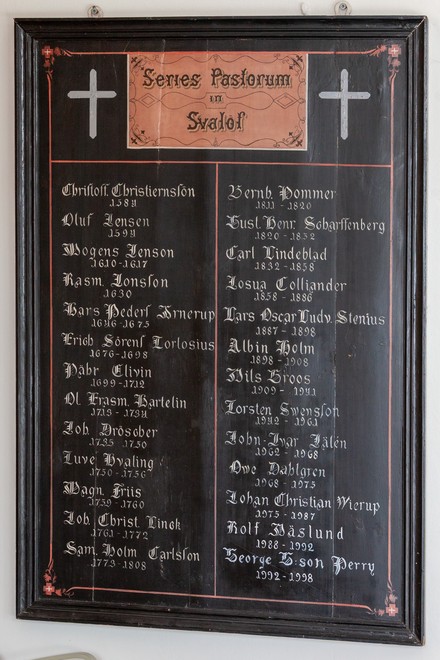 Series Pastorum
in
Svalöf
Christoff. Christiernssön
1584
Oluf Jensen
1594
Mogens Jenson
1610-1617
Rasm. Jonsson
1630
Hans Peders Ärnerup
1646-1675
Erich Sörens Torlosius
1676-1698
Pahr Elivin
1699-1712
Ol. Erasm. Bartelin
1713-1734
Joh. Brösöber
1735-1750
Luve Hvaling
1750-1756
Magn. Friis
1759-1760
Joh. Christ. Linek
1761-1772
Sam. Holm Carlsson
1773-1808
Bernh. Pommer
1811-1820
Gust. Henr. Scharffenberg
1820-1832
Carl Lindeblad
1832-1858
Josua Colliander
1858-1886
Lars Oscar Ludv. Stenius
1887-1898
Albin Holm
1898-1908
Nils Groos
1909-1941
Torsten Swensson
1942-1961
John-Ivar Fälén
1962-1968
Owe Dahlgren
1968-1975
Johan Christian Nerup
1975-1987
Rolf Wäslund
1988-1992
George L:son Perry
1992-1998